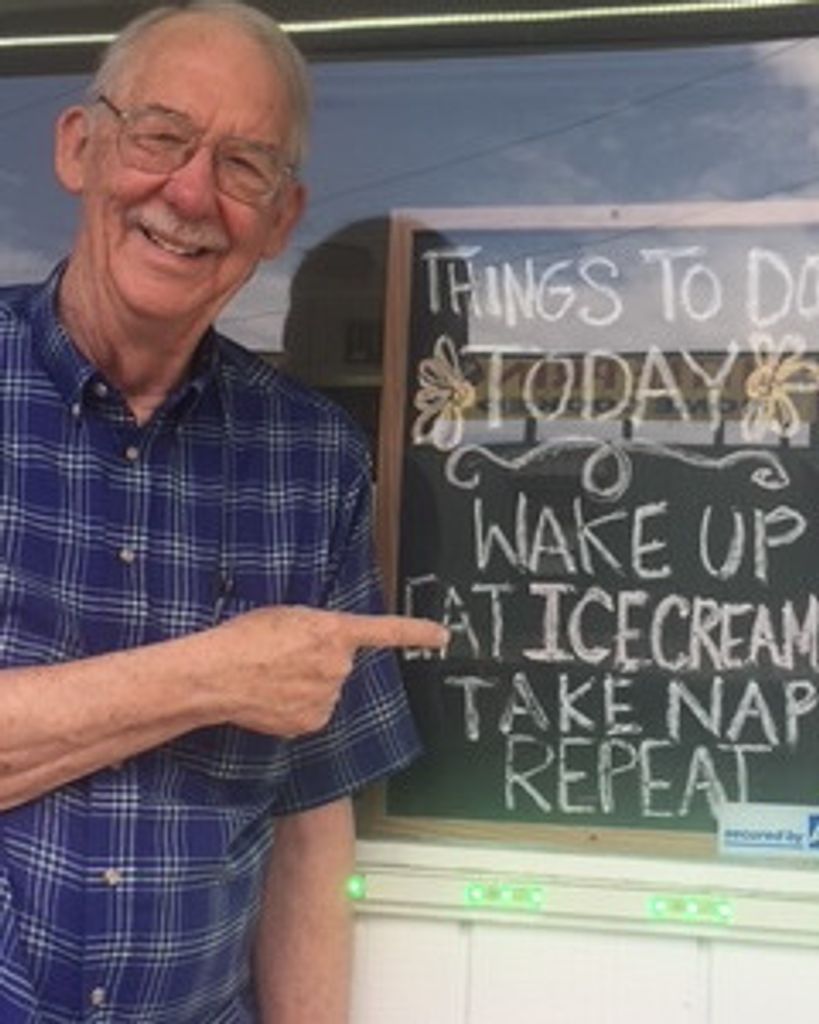 THINGS TO DO
TODAY
WAKE UP
EAT ICECREAM
TAKE NAP
REPEAT
secured by